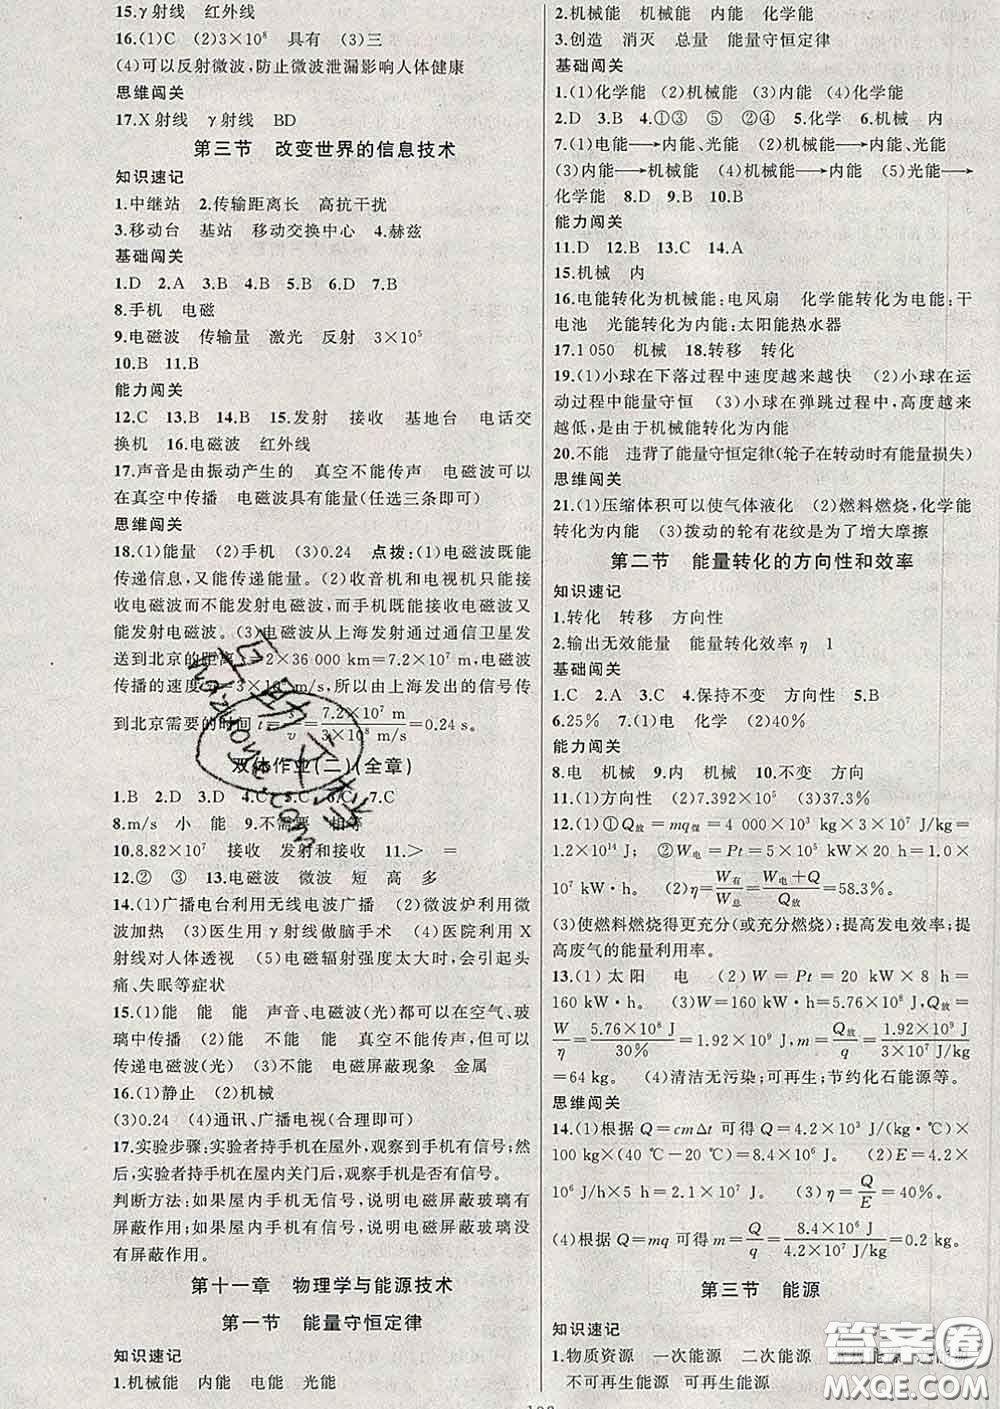 15.γ射线　红外线
16.(1)C　(2)3×10⁸　具有　(3)三
(4)可以反射微波,防止微波泄漏影响人体健康
思维闯关
17.X射线　γ射线　BD
第三节　改变世界的信息技术
知识速记
1.中继站　2.传输距离长　高抗干扰
3.移动台　基站　移动交换中心　4.赫兹
基础闯关
1.D　2.A　3.B　4.B　5.C　6.D　7.B
8.手机　电磁
9.电磁波　传输量　激光　反射　3×10⁵
10.B　11.B
能力闯关
12.C　13.B　14.B　15.发射　接收　基地台　电话交
换机　16.电磁波　红外线
17.声音是由振动产生的　真空不能传声　电磁波可以
在真空中传播　电磁波具有能量(任选三条即可)
思维闯关
18.(1)能量　(2)手机　(3)0.24　点拨:(1)电磁波既能
传递信息,又能传递能量。(2)收音机和电视机只能接
收电磁波而不能发射电磁波,而手机既能接收电磁波又
能发射电磁波。(3)电磁波从上海发射通过通信卫星发
送到北京的距离 s=2×36 000 km=7.2×10⁷ m,电磁波
传播的速度 3×10⁸ m/s,所以由上海发出的信号传
到北京需要的时间 t=s/v=7.2×10⁷ m/3×10⁸ m/s=0.24 s。
双休作业(二)(全章)
1.B　2.D　3.D　4.C　5.C　6.C　7.C
8.m/s　小　能　9.不需要　相等
10.8.82×10⁷　接收　发射和接收　11.>　=
12.②　③　13.电磁波　微波　短　高　多
14.(1)广播电台利用无线电波广播　(2)微波炉利用微
波加热　(3)医生用γ射线做脑手术　(4)医院利用X
射线对人体透视　(5)电磁辐射强度太大时,会引起头
痛、失眠等症状
15.(1)能　能　能　声音、电磁波(光)都可以在空气、玻
璃中传播　(2)能　不能　能　真空不能传声,但可以
传递电磁波(光)　(3)不能　电磁屏蔽现象　金属
16.(1)静止　(2)机械
(3)0.24　(4)通讯、广播电视(合理即可)
17.实验步骤:实验者持手机在屋外,观察到手机有信号;然
后,实验者持手机在屋内关门后,观察手机是否有信号。
判断方法:如果屋内手机无信号,说明电磁屏蔽玻璃有
屏蔽作用;如果屋内手机有信号,说明电磁屏蔽玻璃没
有屏蔽作用。
第十一章　物理学与能源技术
第一节　能量守恒定律
知识速记
1.机械能　内能　电能　光能
2.机械能　机械能　内能　化学能
3.创造　消灭　总量　能量守恒定律
基础闯关
1.(1)化学能　(2)机械能　(3)内能　(4)化学能
2.D　3.B　4.①③　⑤　②④　5.化学　6.机械　内
7.(1)电能→内能、光能　(2)电能→内能、光能
(3)内能→机械能　(4)机械能→内能　(5)光能→
化学能　8.D　9.B　10.B
能力闯关
11.D　12.B　13.C　14.A
15.机械　内
16.电能转化为机械能:电风扇　化学能转化为电能:干
电池　光能转化为内能:太阳能热水器
17.1 050　机械　18.转移　转化
19.(1)小球在下落过程中速度越来越快　(2)小球在运
动过程中能量守恒　(3)小球在弹跳过程中,高度越来
越低,是由于机械能转化为内能
20.不能　违背了能量守恒定律(轮子在转动时有能量损失)
思维闯关
21.(1)压缩体积可以使气体液化　(2)燃料燃烧,化学能
转化为内能　(3)拨动的轮有花纹是为了增大摩擦
第二节　能量转化的方向性和效率
知识速记
1.转化　转移　方向性
2.输出无效能量　能量转化效率 η　1
基础闯关
1.C　2.A　3.C　4.保持不变　方向性　5.B
6.25%　7.(1)电　化学　(2)40%
能力闯关
8.电　机械　9.内　机械　10.不变　方向
11.(1)方向性　(2)7.392×10⁵　(3)37.3%
12.(1)①Q放=mq煤=4 000×10³ kg×3×10⁷ J/kg=
1.2×10¹⁴ J;　②W电=Pt=5×10⁵ kW×20 h=1.0×
10⁷ kW·h。　(2)η=W有/W总=W电+Q/Q放=58.3%。
(3)使燃料燃烧得更充分(或充分燃烧);提高发电效率;提
高废气的能量利用率。
13.(1)太阳　电　(2)W=Pt=20 kW×8 h=
160 kW·h。　(3)W=160 kW·h=5.76×10⁸ J,Q放=
W/η=5.76×10⁸ J/30%=1.92×10⁹ J,m=Q放/q=1.92×10⁹ J/3×10⁷ J/kg
=64 kg。　(4)清洁无污染;可再生;节约化石能源等。
思维闯关
14.(1)根据 Q=cmΔt 可得 Q=4.2×10³ J/(kg·℃)×
100 kg×(40℃-20℃)=8.4×10⁶ J。　(2)E=4.2×
10⁶ J/h×5 h=2.1×10⁷ J。　(3)η=Q/E=40%。
(4)根据 Q=mq 可得 m=Q/q=8.4×10⁶ J/4.2×10⁷ J/kg=0.2 kg。
第三节　能源
知识速记
1.物质资源　一次能源　二次能源
不可再生能源　可再生能源
互助文档
hdzhome.com
答案圈
MXQE.COM